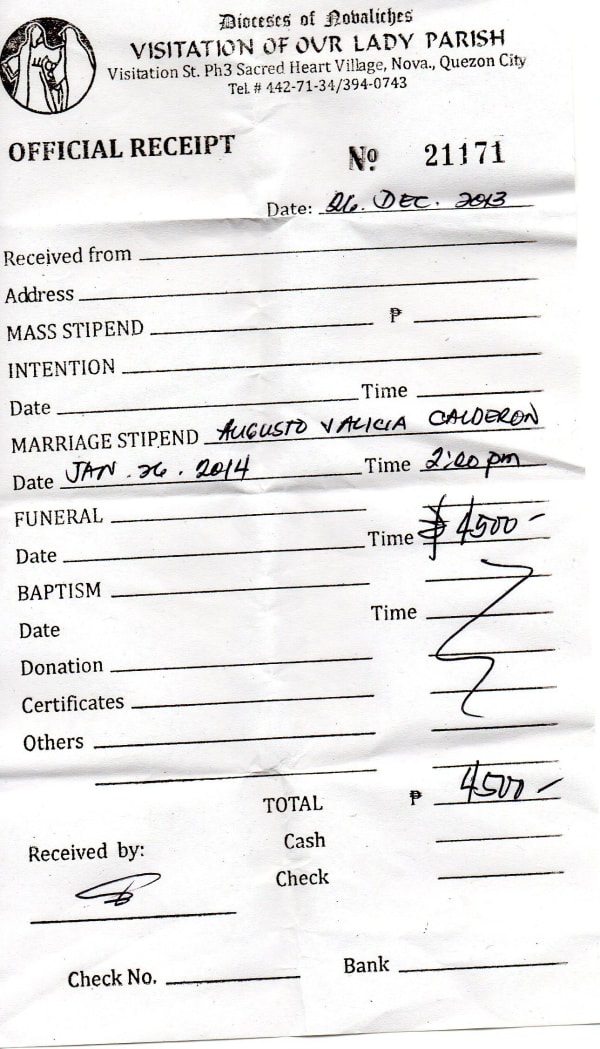 Dioceses of Novaliches
VISITATION OF OUR LADY PARISH
Visitation St. Ph3 Sacred Heart Village, Nova., Quezon City
Tel. # 442-71-34/394-0743
OFFICIAL RECEIPT No. 21171
Date: 26. DEC. 2013
Received from
Address
MASS STIPEND ₱
INTENTION
Date Time
MARRIAGE STIPEND AUGUSTO Y ALICIA CALDERON
Date JAN. 26. 2014 Time 2:00 pm
FUNERAL
Date Time ₱ 4500-
BAPTISM
Date Time
Donation
Certificates
Others
TOTAL ₱ 4500-
Cash
Received by:
Check
Check No. Bank